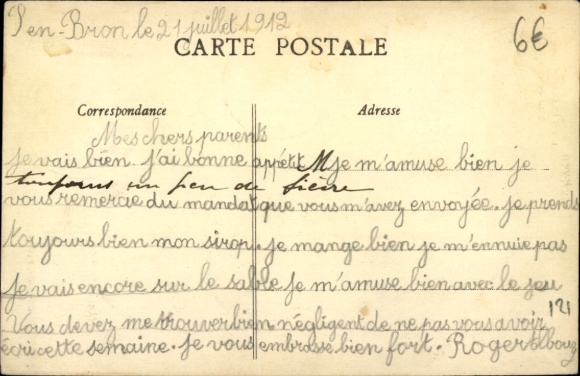 Pen-Bron le 21 juillet 1912
6€
CARTE POSTALE
Correspondance
Adresse
Mes chers parents
je vais bien j'ai bonne appétit M je m'amuse bien je
toujours un peu de fièvre
vous remercie du mandat que vous m'avez envoyée. je prends
toujours bien mon sirop. je mange bien je m'ennuie pas
je vais encore sur le sable je m'amuse bien avec le jeu
Vous devez me trouver bien négligent de ne pas vous avoir
121
écri cette semaine. je vous embrasse bien fort. Roger